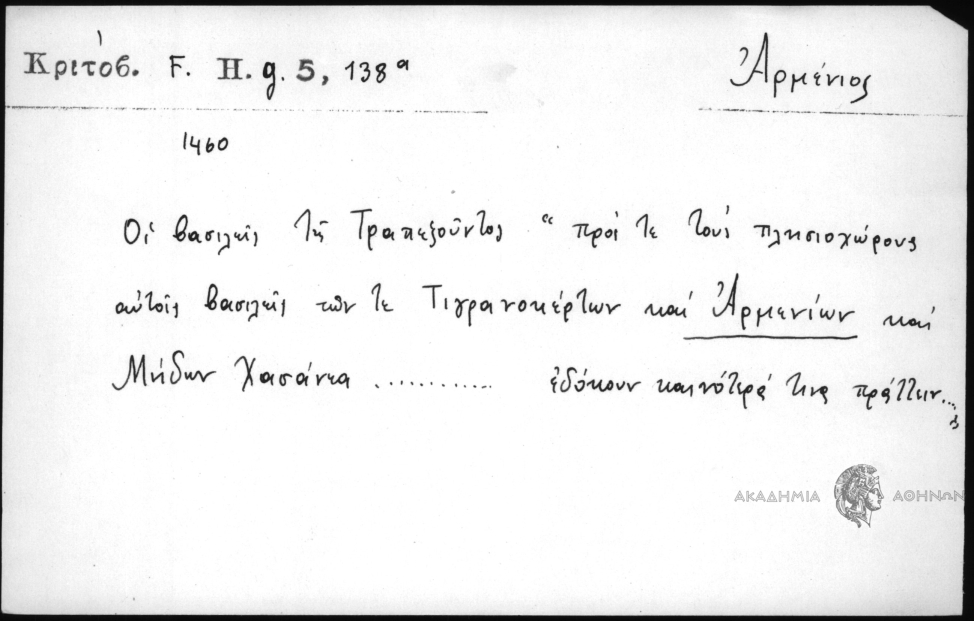 Κριτόβ. F. H. g. 5, 138ᵃ
Ἀρμένιος
1460
Οἱ βασιλεῖς τῆς Τραπεζοῦντος “ πρός τε τοὺς πλησιοχώρους
αὐτοῖς βασιλεῖς τῶν τε Τιγρανοκέρτων καὶ Ἀρμενίων καὶ
Μήδων Χασάνεα ........... ἐδόκουν καινότερά τινα πράττειν...
ΑΚΑΔΗΜΙΑ ΑΘΗΝΩΝ